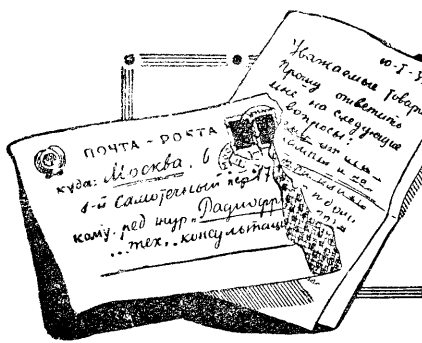 ПОЧТА - POSTA
куда: Москва. 6
1-й Самотечный пер 17
кому: ред жур. „Радиофр
... тех.. консультац
10-I-3
Уважаемые Товар
Прошу ответить
мне на следующие
вопросы: